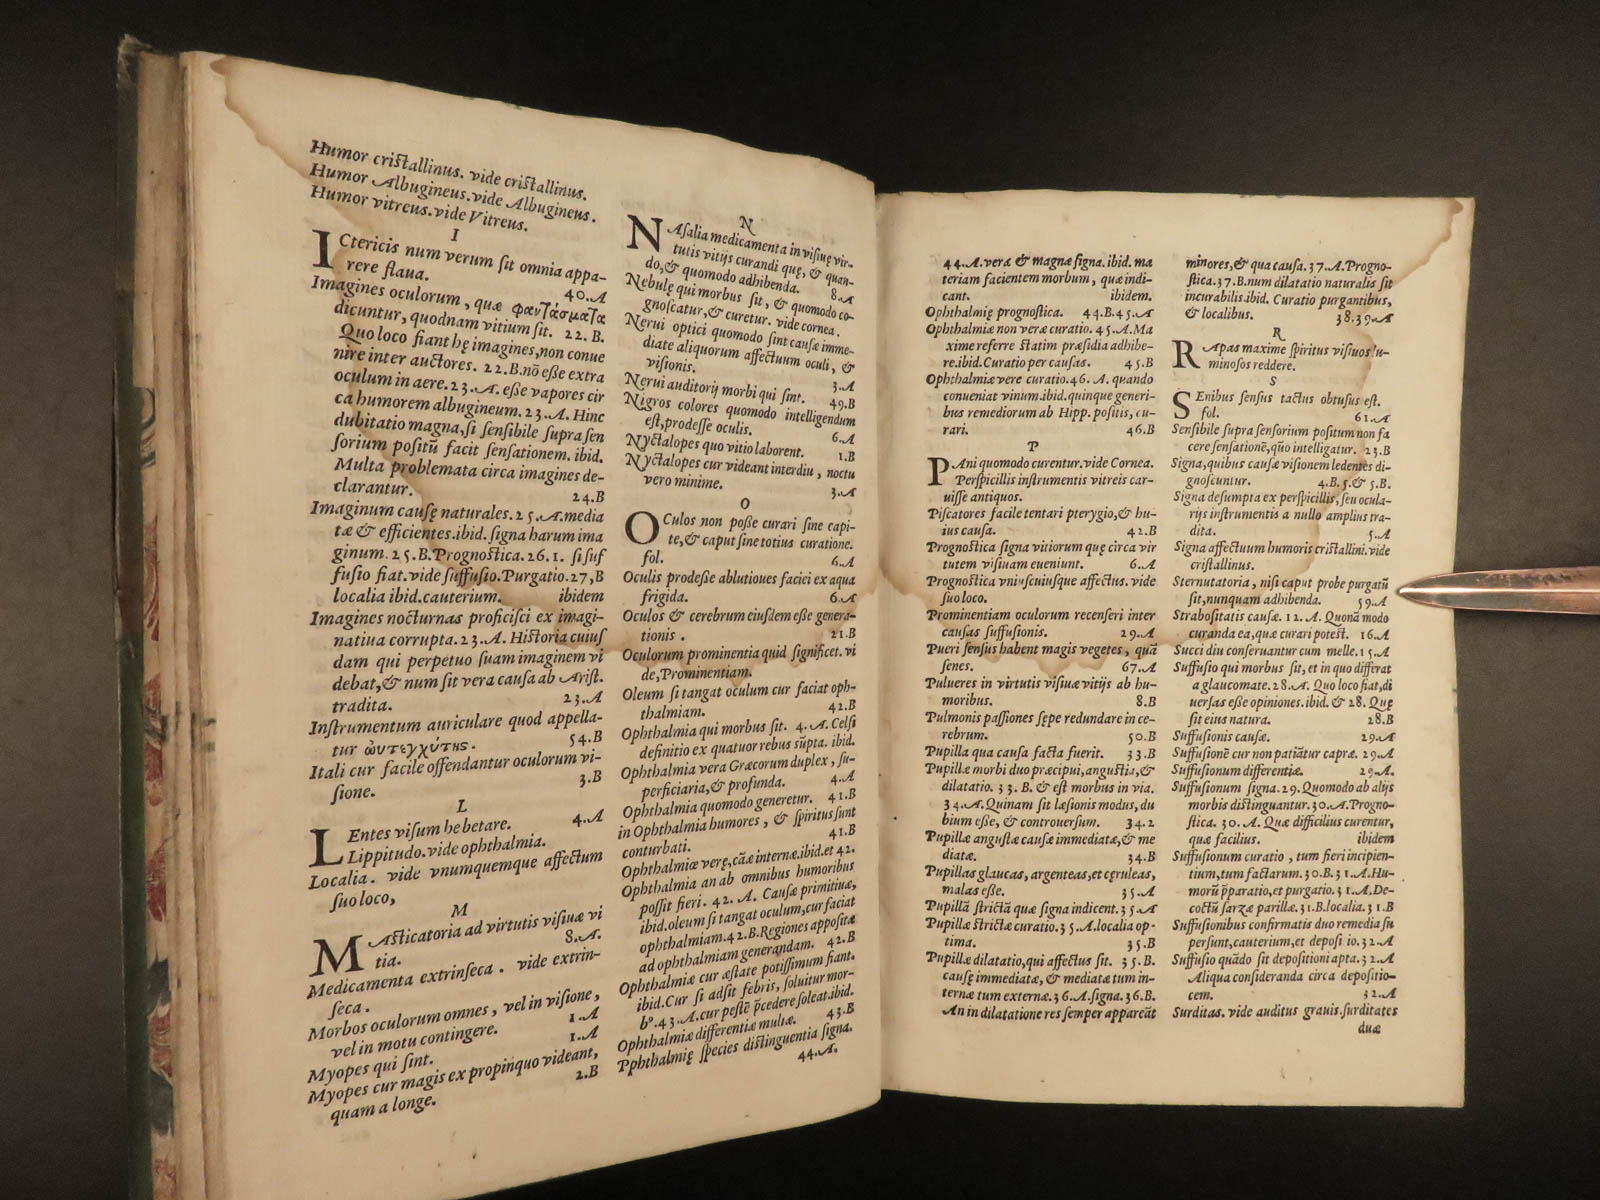 Humor cristallinus. vide cristallinus.
Humor Albugineus. vide Albugineus.
Humor vitreus. vide Vitreus.
I
ICtericis num verum sit omnia appa-
rere flaua. 40. A
Imagines oculorum, quæ φαντάσματα
dicuntur, quodnam vitium sit. 22. B.
Quo loco fiant hę imagines, non conue
nire inter auctores. 22. B. nõ eße extra
oculum in aere. 23. A. eße vapores cir
ca humorem albugineum. 23. A. Hinc
dubitatio magna, si sensibile supra sen
sorium positũ facit sensationem. ibid.
Multa problemata circa imagines de-
clarantur. 24. B
Imaginum causę naturales. 25. A. media
tæ & efficientes. ibid. signa harum ima
ginum. 25. B. Prognostica. 26. 1. si suf
fusio fiat. vide suffusio. Purgatio. 27, B
localia ibid. cauterium. ibidem
Imagines nocturnas proficisci ex imagi-
natiua corrupta. 23. A. Historia cuius
dam qui perpetuo suam imaginem vi
debat, & num sit vera causa ab Arist.
tradita. 23. A
Instrumentum auriculare quod appella-
tur ὠυτεγχύτης. 54. B
Itali cur facile offendantur oculorum vi-
sione. 3. B
L
LEntes visum hebetare. 4. A
Lippitudo. vide ophthalmia.
Localia. vide vnumquemque affectum
suo loco,
M
MAsticatoria ad virtutis visiuæ vi
tia. 8. A.
Medicamenta extrinseca. vide extrin-
seca.
Morbos oculorum omnes, vel in visione,
vel in motu contingere. 1. A
Myopes qui sint. 1. A
Myopes cur magis ex propinquo videant,
quam a longe. 2. B
N
NAsalia medicamenta in visiuę vir-
tutis vitijs curandi quę, & quan-
do, & quomodo adhibenda. 8. A
Nebulę qui morbus sit, & quomodo co-
gnoscatur, & curetur. vide cornea.
Nerui optici quomodo sint causæ imme-
diate aliquorum affectuum oculi, &
visionis. 3. A
Nerui auditorij morbi qui sint. 49. B
Nigros colores quomodo intelligendum
est, prodesse oculis. 6. A
Nyctalopes quo vitio laborent. 1. B
Nyctalopes cur videant interdiu, noctu
vero minime. 3. A
O
OCulos non poße curari sine capi-
te, & caput sine totius curatione.
fol. 6. A
Oculis prodeße ablutioues faciei ex aqua
frigida. 6. A
Oculos & cerebrum eiusdem eße genera-
tionis. 21. B
Oculorum prominentia quid significet. vi
de, Prominentiam.
Oleum si tangat oculum cur faciat oph-
thalmiam. 42. B
Ophthalmia qui morbus sit. 4. A. Celsi
definitio ex quatuor rebus sũpta. ibid.
Ophthalmia vera Græcorum duplex, su-
perficiaria, & profunda. 4. A
Ophthalmia quomodo generetur. 41. B
in Ophthalmia humores, & spiritus sunt
conturbati. 41. B
Ophthalmiœ verę, cãæ internæ. ibid. et 42.
Ophthalmia an ab omnibus humoribus
possit fieri. 42. A. Causæ primitiuæ,
ibid. oleum si tangat oculum, cur faciat
ophthalmiam. 42. B. Regiones appositæ
ad ophthalmiam generandam. 42. B
Ophthalmiæ cur æstate potissimum fiant.
ibid. Cur si adsit febris, soluitur mor-
b⁹. 43. A. cur pestẽ p̃cedere soleat. ibid.
Ophthalmiæ differentiæ multæ. 43. B
Ppħthalmię species distinguentia signa.
44. A.
44. A. veræ & magnæ signa. ibid. ma
teriam facientem morbum, quæ indi-
cant. ibidem.
Ophthalmię prognostica. 44. B. 45. A
Ophthalmiæ non veræ curatio. 45. A. Ma
xime referre statim præsidia adhibe-
re. ibid. Curatio per causas. 45. B
Ophthalmiæ vere curatio. 46. A. quando
conueniat vinum. ibid. quinque generi-
bus remediorum ab Hipp. positis, cu-
rari. 46. B
P
PAni quomodo curentur. vide Cornea.
Perspicillis instrumentis vitreis car-
uisse antiquos.
Piscatores facile tentari pterygio, & hu-
ius causa. 42. B
Prognostica signa vitiorum quę circa vir
tutem visiuam eueniunt. 6. A
Prognostica vniuscuiusque affectus. vide
suo loco.
Prominentiam oculorum recenseri inter
causas suffusionis. 29. A
Pueri sensus habent magis vegetes, quã
senes. 67. A
Pulueres in virtutis visiuæ vitijs ab hu-
moribus. 8. B
Pulmonis passiones sępe redundare in ce-
rebrum. 50. B
Pupilla qua causa facta fuerit. 33. B
Pupillæ morbi duo præcipui, angustia, &
dilatatio. 33. B. & est morbus in via.
34. A. Quinam sit læsionis modus, du
bium eße, & controuersum. 34. 2
Pupillæ angustæ causæ immediatæ, & me
diatæ. 34. B
Pupillas glaucas, argenteas, et cęruleas,
malas eße. 35. A
Pupillã strictã quæ signa indicent. 35. A
Pupillæ strictæ curatio. 35. A. localia op-
tima. 35. B
Pupillæ dilatatio, qui affectus sit. 35. B.
causę immediatæ, & mediatæ tum in-
ternæ tum externæ. 36. A. signa. 36. B.
An in dilatatione res semper appareãt
minores, & qua causa. 37. A. Progno-
stica. 37. B. num dilatatio naturalis sit
incurabilis. ibid. Curatio purgantibus,
& localibus. 38. 39. A
R
RApas maxime spiritus visiuos lu-
minosos reddere.
S
SEnibus sensus tactus obtusus est.
fol. 61. A
Sensibile supra sensorium positum non fa
cere sensationẽ, quõ intelligatur. 23. B
Signa, quibus causæ visionem ledentes di-
gnoscuntur. 4. B. 5. & 5. B.
Signa desumpta ex perspicillis, seu ocula-
rijs instrumentis a nullo amplius tra-
dita. 5. A
Signa affectuum humoris cristallini. vide
cristallinus.
Sternutatoria, nisi caput probe purgatũ
sit, nunquam adhibenda. 59. A
Strabositatis causæ. 12. A. Quonã modo
curanda ea, quæ curari potest. 16. A
Succi diu conseruantur cum melle. 15. A
Suffusio qui morbus sit, et in quo differat
a glaucomate. 28. A. Quo loco fiat, di
uersas eße opiniones. ibid. & 28. Quę
sit eius natura. 28. B
Suffusionis causæ. 29. A
Suffusionẽ cur non patiãtur capræ. 29. A
Suffusionum differentiæ. 29. A.
Suffusionum signa. 29. Quomodo ab alijs
morbis distinguantur. 30. A. Progno-
stica. 30. A. Quæ difficilius curentur,
quæ facilius. ibidem
Suffusionum curatio, tum fieri incipien-
tium, tum factarum. 30. B. 31. A. Hu-
morũ p̃paratio, et purgatio. 31. A. De-
coctũ sarzæ parillæ. 31. B. localia. 31. B
Suffusionibus confirmatis duo remedia su
persunt, cauterium, et deposi io. 32. A
Suffusio quãdo sit depositioni apta. 32. A
Aliqua consideranda circa depositio-
cem. 32. A
Surditas. vide auditus grauis. surditates
duæ